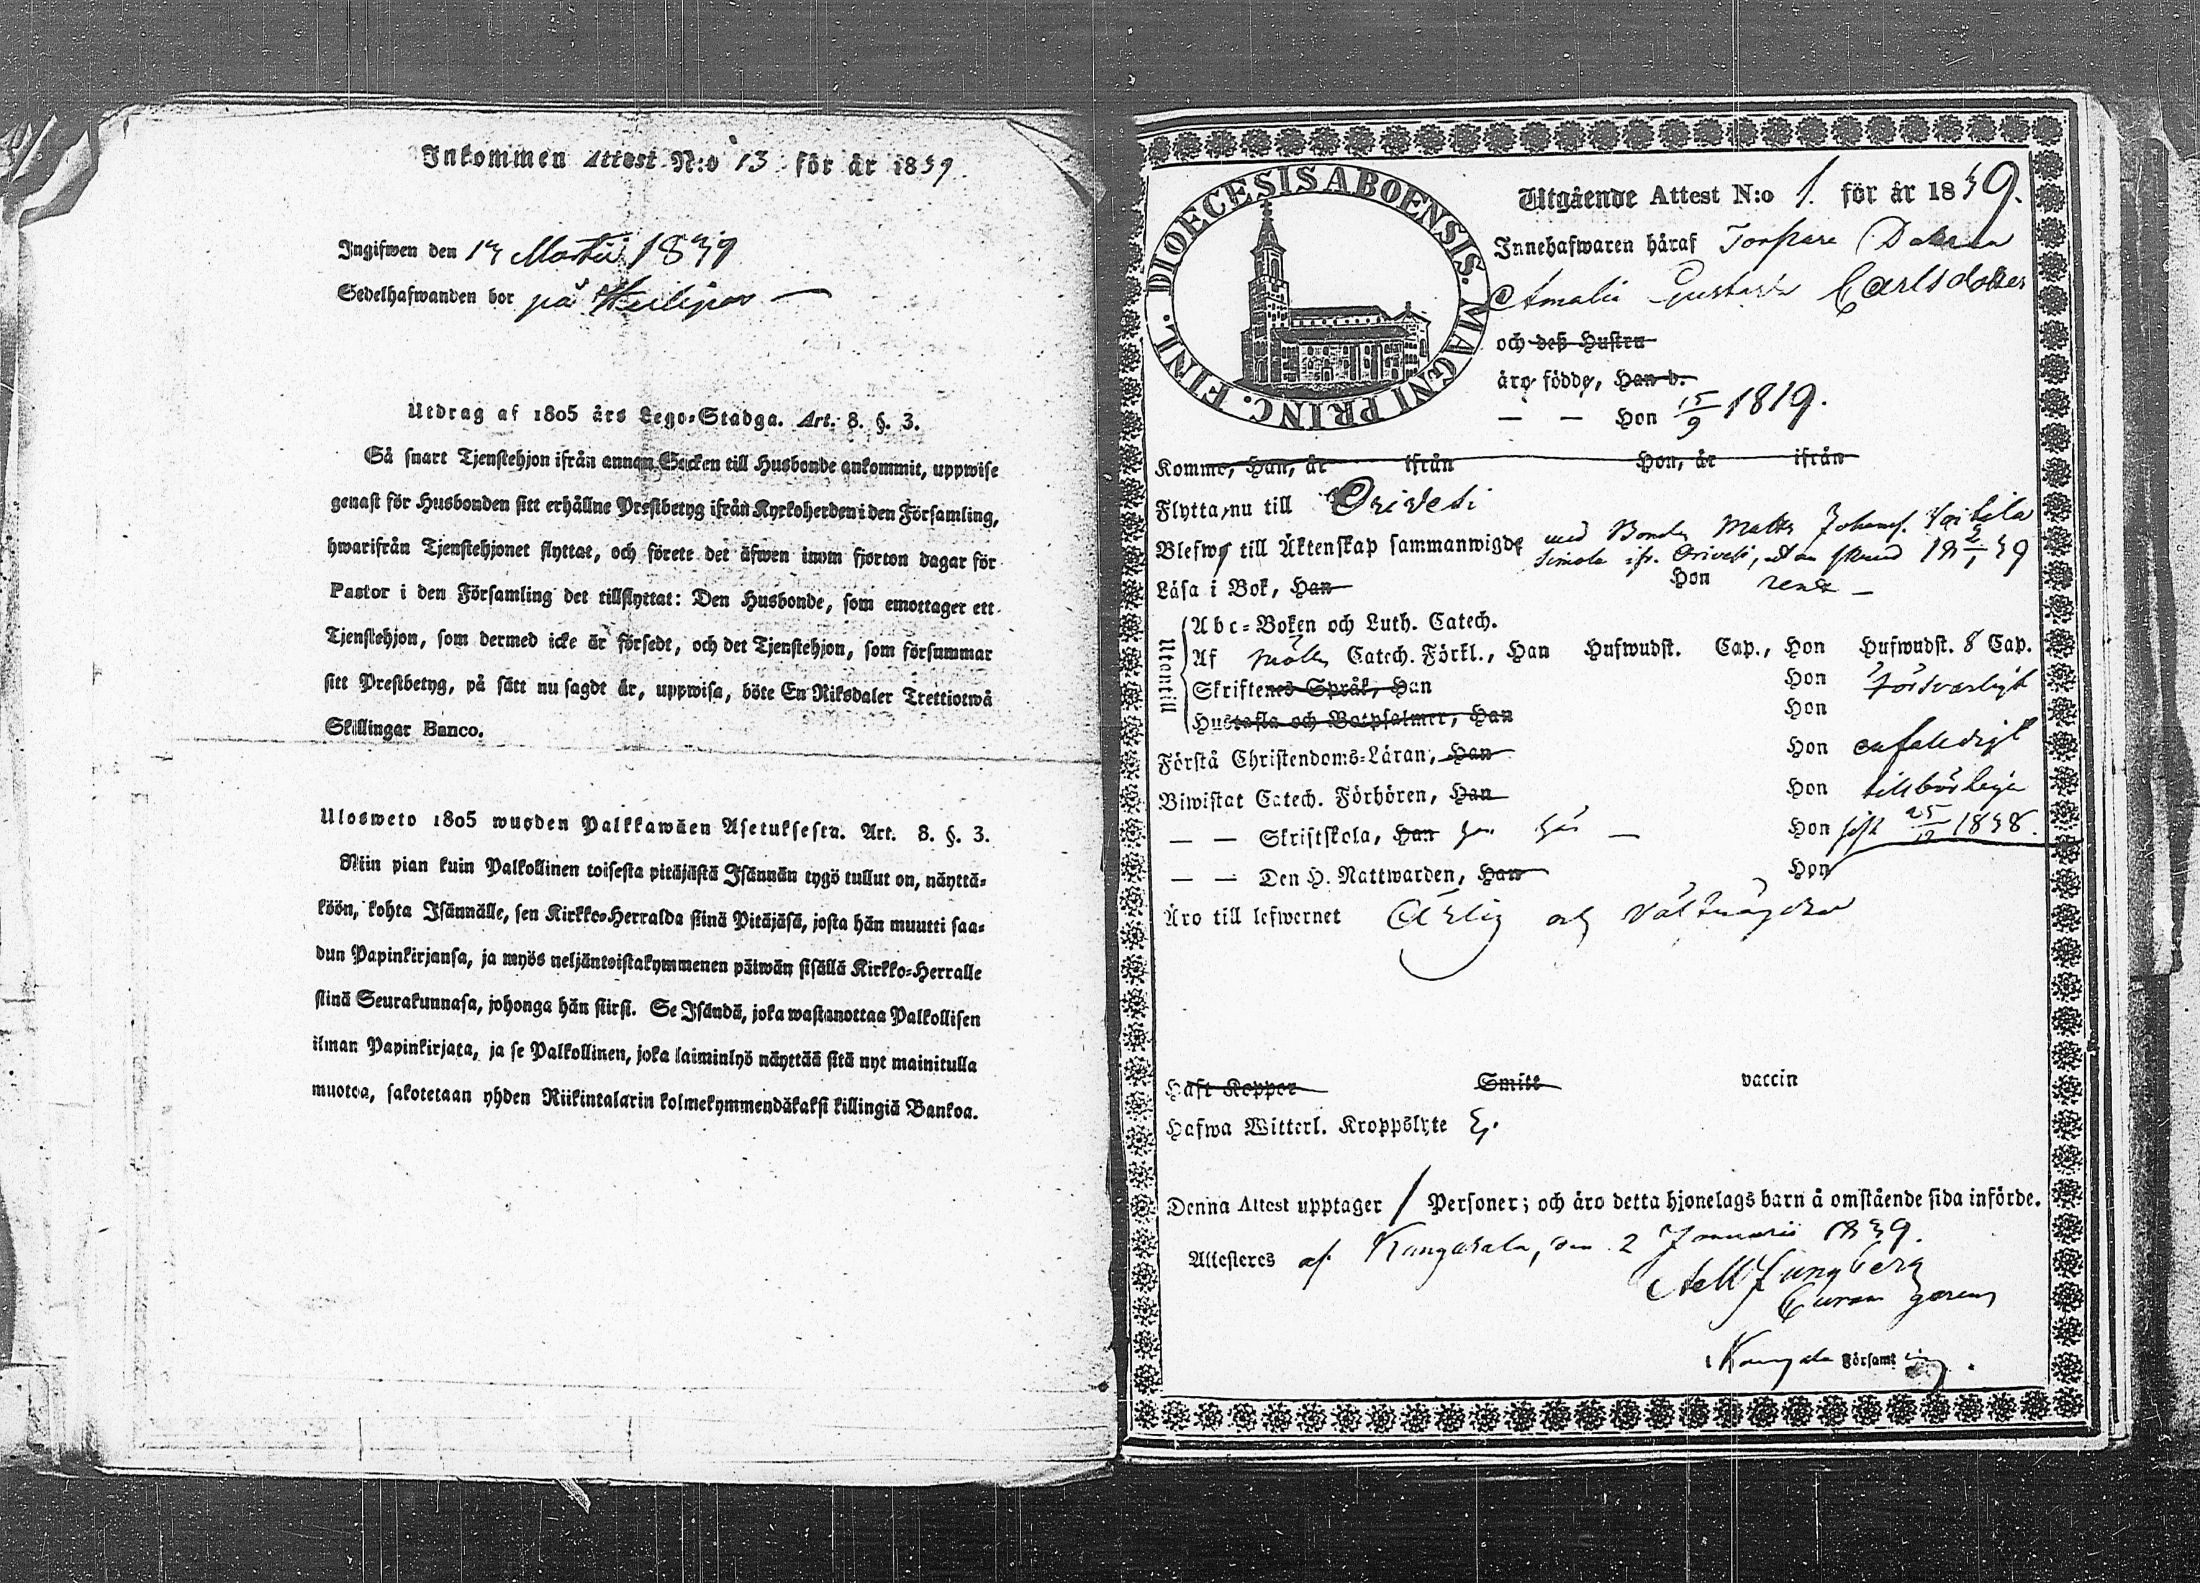 Inkommen Attest N:o 13 för år 1839.
Ingifwen den 13 Martii 1839
Sedelhafwanden bor på Heilijoo —
Utdrag af 1805 års Lego-Stadga. Art. 8. §. 3.
Så snart Tjenstehjon ifrån annan Socken till Husbonde ankommit, uppwise
genast för Husbonden sitt erhållne Prestbetyg ifrån Kyrkoherden i den Församling,
hwarifrån Tjenstehjonet flyttat, och förete det äfwen inom fjorton dagar för
Pastor i den Församling det tillflyttat: Den Husbonde, som emottager ett
Tjenstehjon, som dermed icke är försedt, och det Tjenstehjon, som försummar
sitt Prestbetyg, på sätt nu sagdt är, uppwisa, böte En Riksdaler Trettiotwå
Skillingar Banco.
Ulosweto 1805 wuoden Palkkawäen Asetuksesta. Art. 8. §. 3.
Niin pian kuin Palkollinen toisesta pitäjästä Isännän tygö tullut on, näyttä-
köön, kohta Isännälle, sen Kirkko-Herralda siinä Pitäjäsä, josta hän muutti saa-
dun Papinkirjansa, ja myös neljäntoistakymmenen päiwän sisällä Kirkko-Herralle
siinä Seurakunnasa, johonga hän siirst. Se Isändä, joka wastanottaa Palkollisen
ilman Papinkirjata, ja se Palkollinen, joka laiminlyö näyttää sitä nyt mainitulla
muotoa, sakotetaan yhden Riikintalarin kolmekymmendäkaksi killingiä Bankoa.
DIOECESIS ABOENSIS. MAGNI PRINC. FINL.
Utgående Attest N:o 1. för år 1839.
Innehafwaren häraf Torpare Dottern
Amalia Gustava Carlsdotter
och deß Hustru
äro födde, Han d.
— — Hon 15/9 1819.
Komme, Han, år ifrån Hon, år ifrån
Flytta, nu till Orivesi
Blefwo till Äktenskap sammanwigde med Bonden Matts Johansf.
Simola ifr. Orivesi, 18 2/1 39
Läsa i Bok, Han Hon rent —
Utantill
Abc-Boken och Luth. Catech.
Af Möllers Catech. Förkl., Han Hufwudst. Cap., Hon Hufwudst. 8 Cap.
Skriftenes Språk, Han Hon försvarligt
Hustafla och Botpsalmer, Han Hon
Förstå Christendoms-Läran, Han Hon enfaldigt
Biwistat Catech. Förhören, Han Hon tillbörligt
— — Skriftskola, Han här — Hon sist 25/12 1838.
— — Den H. Nattwarden, Han Hon
Äro till lefwernet Ärlig och Välfrägdad
Haft Koppor Smitt vaccin
Hafwa Witterl. Kroppslyte Ej.
Denna Attest upptager 1 Personer; och äro detta hjonelags barn å omstående sida införde.
Attesteres af Kangasala, den 2 Januarii 1839.
A. M. Ljungberg
Curam gerens
i Kangasala Församling.